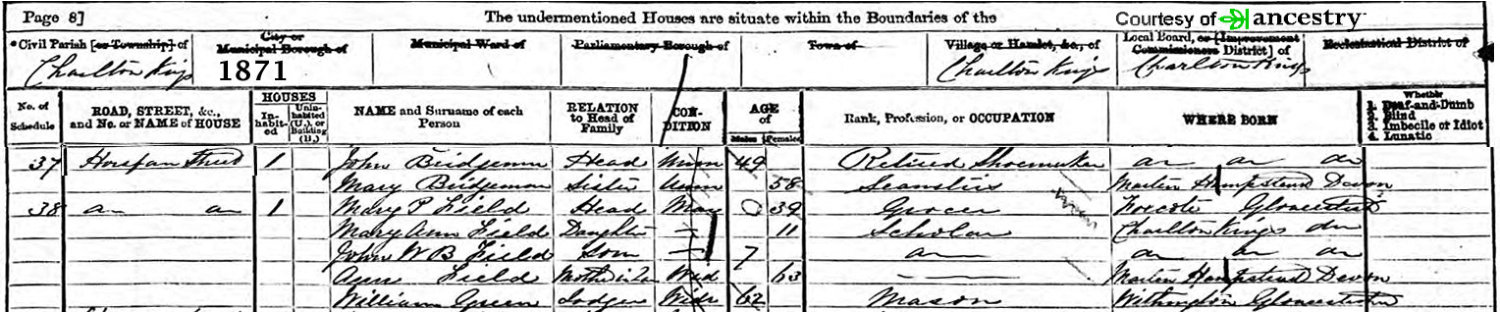 Page 8] The undermentioned Houses are situate within the Boundaries of the Courtesy of ancestry
Civil Parish [or Township] of City or Municipal Borough of Municipal Ward of Parliamentary Borough of Town of Village or Hamlet, &c., of Local Board, or [Improvement Commissioners District] of Ecclesiastical District of
Charlton Kings 1871 Charlton Kings Charlton Kings
No. of Schedule ROAD, STREET, &c., and No. or NAME of HOUSE HOUSES Inhabited Uninhabited (U.), or Building (B.) NAME and Surname of each Person RELATION to Head of Family CONDITION AGE of Males Females Rank, Profession, or OCCUPATION WHERE BORN Whether 1. Deaf-and-Dumb 2. Blind 3. Imbecile or Idiot 4. Lunatic
37 Street 1 John Bridgeman Head Unm 49 Retired Shoemaker do do do
Mary Bridgeman Sister Unm 58 Hampstead Devon
38 do do 1 Mary P Field Head Mar 39 Grocer Foxcote
Mary Ann Field Daughter 11 Scholar Charlton Kings do
John W B Field Son 7 do do do do
Ann Field Mother in La Wid 63 Hampstead Devon
William Green Lodger Widr 62 Mason Withington Gloucester